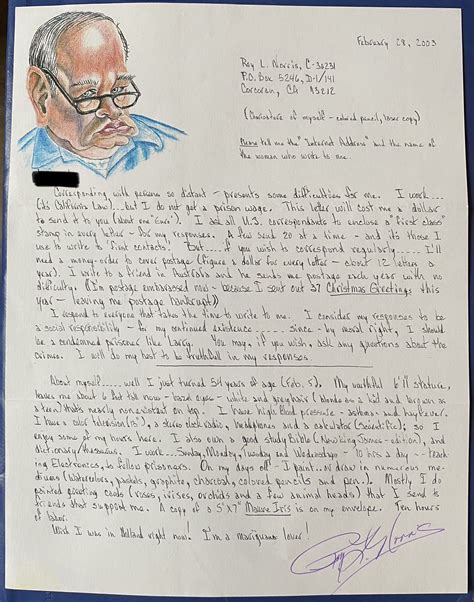 February 28, 2003
Roy L. Norris, C-30231
P.O. Box 5246, D-1/141
Corcoran, CA 93212
(Caricature of myself - colored pencil, laser copy)
tell me the "Internet Address" and the name
of the woman who wrote to me.
Corresponding with persons so distant - presents some difficulties for me. I work....
(its California Law)....but I do not get a prison wage. This letter will cost me a dollar
to send it to you (about one Euro). I ask all U.S. correspondents to enclose a "first class"
stamp in every letter - for my responses. A few send 20 at a time - and it's those I
use to write to 'first contacts! But....if you wish to correspond regularly..... I'll
need a money-order to cover postage (figure a dollar for every letter - about 12 letters a
year). I write to a friend in Australia and he sends me postage each year with no
difficulty. (I'm postage embarrassed now - because I sent out 37 Christmas Greetings this
year - leaving me postage bankrupt))
I respond to everyone that takes the time to write to me. I consider my responses to be
a social responsibility - for my continued existence ...... since - by moral right, I should
be a condemned prisoner like Larry. You may, if you wish, ask any questions about the
crimes. I will do my best to be truthful in my responses
About myself..... well I just turned 54 years of age (Feb. 5). My youthful 6'1" stature,
leaves me about 6 feet tall now - hazel eyes - white and grey hair (blonde as a kid and brown as
a teen) that's nearly non existent on top. I have high blood pressure - asthma and hayfever.
I have a color television (13"), a stereo clock radio, headphones and a calculator (scientific); so I
enjoy some of my hours here. I also own a good study Bible (New King James-edition), and
dictionary/thesaurus. I work... Sunday, Monday, Tuesday and Wednesdays - 10 hrs a day -- teach-
ing Electronics, to fellow prisoners. On my days off - I paint.. or draw in numerous me-
diums (watercolors, pastels, graphite, charcoal, colored pencils and pen.). Mostly I do
painted greeting cards (roses, irises, orchids and a few animal heads) that I send to
friends that support me. A copy of a 5"x7" Mauve Iris is on my envelope. Ten hours
of labor.
Wish I was in Holland right now! I'm a marijuana lover!
Roy L. Norris